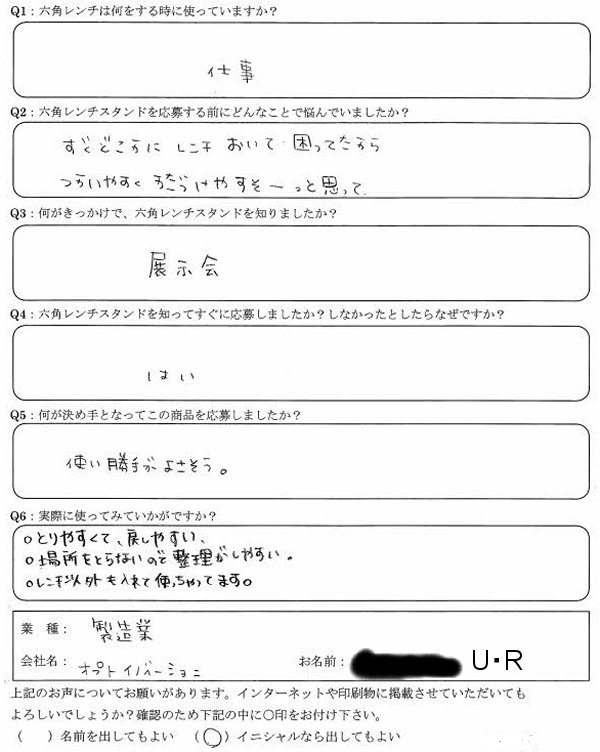 Q1：六角レンチは何をする時に使っていますか？
仕事
Q2：六角レンチスタンドを応募する前にどんなことで悩んでいましたか？
すぐどこかに レンチ おいて 困ってたから
つかいやすく かたづけやすそーっと思って
Q3：何がきっかけで、六角レンチスタンドを知りましたか？
展示会
Q4：六角レンチスタンドを知ってすぐに応募しましたか？しなかったとしたらなぜですか？
はい
Q5：何が決め手となってこの商品を応募しましたか？
使い勝手がよさそう。
Q6：実際に使ってみていかがですか？
○とりやすくて、戻しやすい、
○場所をとらないので整理がしやすい。
○レンチ以外も入れて使っちゃってます○
業 種： 製造業
会社名： オプトイノベーション
お名前： U・R
上記のお声についてお願いがあります。インターネットや印刷物に掲載させていただいても
よろしいでしょうか？確認のため下記の中に〇印をお付け下さい。
（ ）名前を出してもよい （〇）イニシャルなら出してもよい